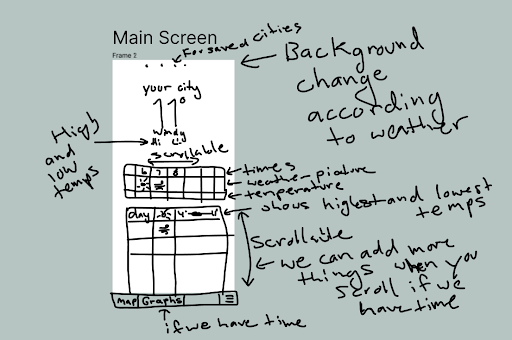 Main Screen
Frame 2
For saved cities
Background
change
according
to weather
your city
11°
windy
Hi Lo
High
and
low
temps
scrollable
6 7 8
times
weather picture
temperature
day 4° 11°
shows highest and lowest
temps
Scrollable
we can add more
things when you
scroll if we
have time
Map Graphs
if we have time